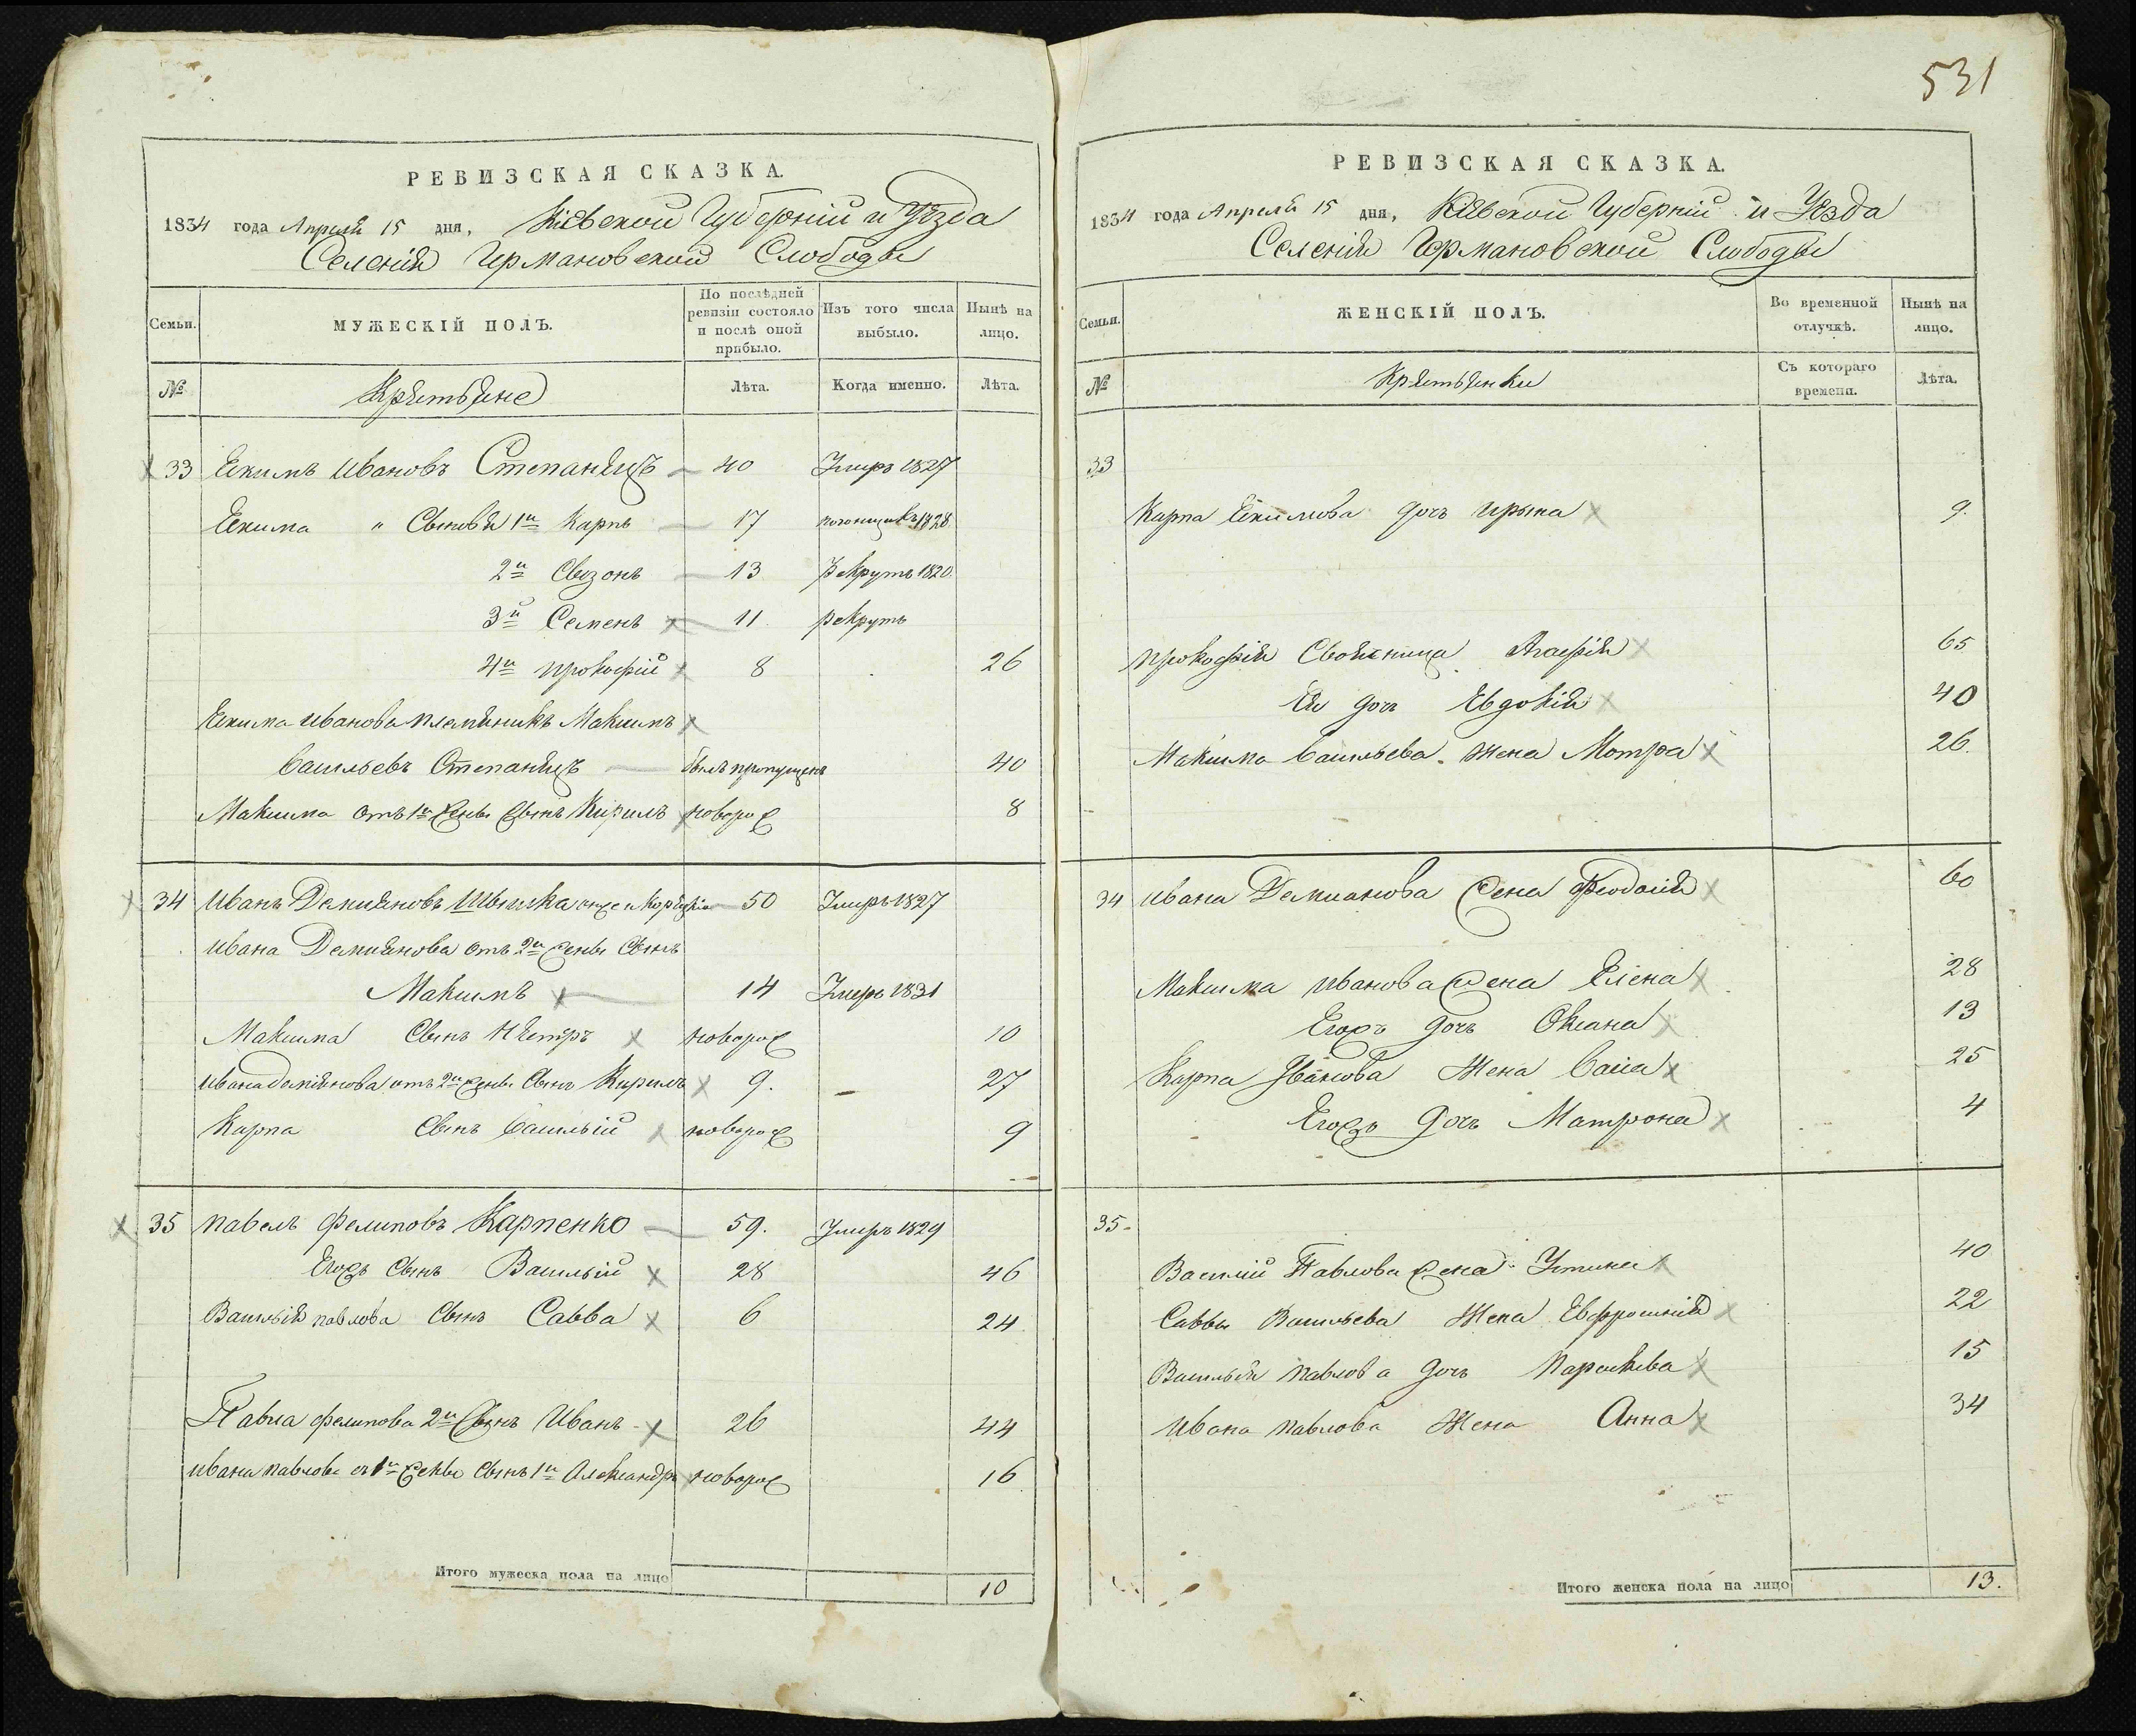 531
РЕВИЗСКАЯ СКАЗКА.
1834 года Апреля 15 дня, Кіевской Губерніи и Уѣзда
Селенія Германовской Слободы
Семьи.
МУЖЕСКІЙ ПОЛЪ.
По послѣдней ревизіи состояло и послѣ оной прибыло.
Изъ того числа выбыло.
Нынѣ на лицо.
№
Крестьяне
Лѣта.
Когда именно.
Лѣта.
33 Екимъ Ивановъ Степанецъ 40 Умеръ 1827
Екима " Сыновья 1й Карпъ 17 1828
2й Созонъ 13 Рекрутъ 1820
3й Семенъ 11 рекрутъ
4й Прокофій 8 26
Екима Иванова племяникъ Максимъ
Васильевъ Степанецъ былъ пропущенъ 40
Максима отъ 1й жены сынъ Кирилъ новорож 8
34 Иванъ Демьяновъ Швышка онже и 50 Умеръ 1827
Ивана Демьянова отъ 2й жены Сынъ
Максимъ 14 Умеръ 1831
Максима Сынъ Петръ новорож 10
Ивана Демьянова отъ 2й жены Сынъ Кирилъ 9. 27
Карпа Сынъ Василій новорож 9
35 Павелъ Фелиповъ Карпенко 59. Умеръ 1829
Егожъ Сынъ Василій 28 46
Василія Павлова Сынъ Савва 6 24
Павла Фелипова 2й Сынъ Иванъ 26 44
Ивана Павлова от 1й жены Сынъ 1й Александръ новорож 16
Итого мужеска пола на лицо 10
РЕВИЗСКАЯ СКАЗКА.
1834 года Апреля 15 дня, Кіевской Губерніи и Уѣзда
Селенія Германовской Слободы
Семьи.
ЖЕНСКІЙ ПОЛЪ.
Во временной отлучкѣ.
Нынѣ на лицо.
№
Крестьянки
Съ котораго времени.
Лѣта.
33
Карпа Екимова дочь Ирына 9.
Прокофія Своясница Агафія 65
Ея дочь Евдокія 40
Максима Васильева Жена Мотра 26
34 Ивана Демианова жена Феодосія 60
Максима Иванова жена Елена 28
Егожъ дочь Оксана 13
Карпа Иванова Жена Васса 25
Егожъ дочь Матрона 4
35
Василія Павлова жена Устина 40
Саввы Васильева Жена Евфросинія 22
Василія Павлова дочь Параскева 15
Ивана Павлова Жена Анна 34
Итого женска пола на лицо 13.